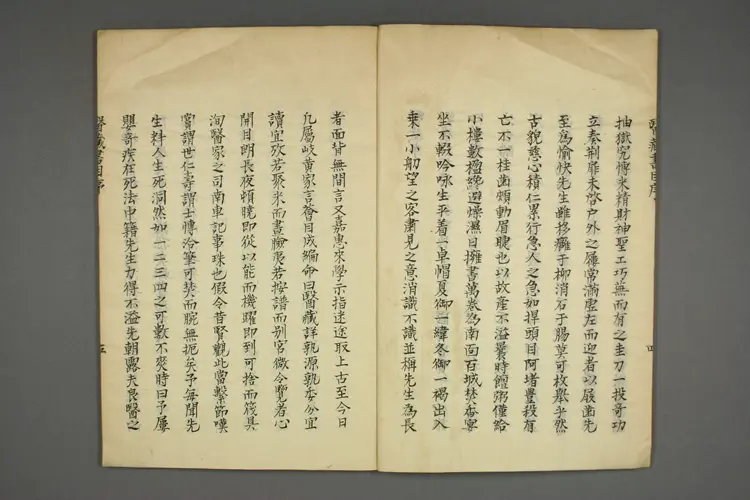 醫藏書目序
抽嶽究博來精財神聖工巧蕪而有之圭刀一投奇功
立奏剌扉未啓户外之屨常滿虛左而迎者以屐齒先
至為愉快先生雖移癰于柳消石于腸草可枚舉乎然
古貌慈心積仁累行急人之急如捍頭目阿堵豐殺有
亡不一桂齒頰動眉睫也以故產不溢㬥時饘粥僅給
小樓數楹繩避燥濕日擁書萬卷為南面百城焚香宴
坐不輟吟咏生平着一卓帽夏御一緯冬御一褐出入
乗一小舠望之客肅見之意消識不識並稱先生為長
四
者面背無間言又嘉惠來學示指迷途取上古至今日
凢屬岐黄家言薈目成編命曰醫藏詳孰源孰委分宜
讀宜攷若聚米而畫臉夷若按譜而别宮徵令覽者心
開目朗長夜頓曉即從以能而機躍即到可捨而筏具
洵醫家之司南車記事珠也假令昔賢觀此當繫節嘆
賞謂世仁壽謂士博洽筆可焚而腕無扼矣予每聞先
生料人生死洞然如一二三四之可數不爽時日予屢
嬰奇疾在死法中籍先生力得不溢先朝露夫良醫之
醫藏書目序
五